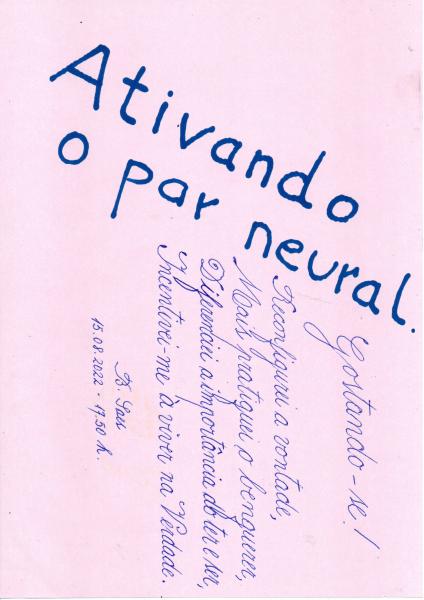 Ativando
o par neural.
Gostando-se!
Reconfigurei a vontade,
Mais pratiquei o benquerer,
Diferenciei a importância do ter e ser,
Incentivei-me à viver na Verdade.
15.08.2022 - 17,50 h.